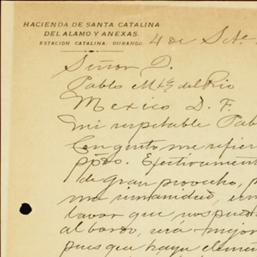 HACIENDA DE SANTA CATALINA
DEL ALAMO Y ANEXAS.
ESTACION CATALINA, DURANGO.
4 de Set.
Señor D.
Pablo Mtz del Rio
Mexico D. F.
mi respetable Pab
Con gusto me refier
ppdo. Efectivament
de gran provecho, p
ma humanidad, em
lavar que nos pued
al bordo, será mejor
pues que haya elemen